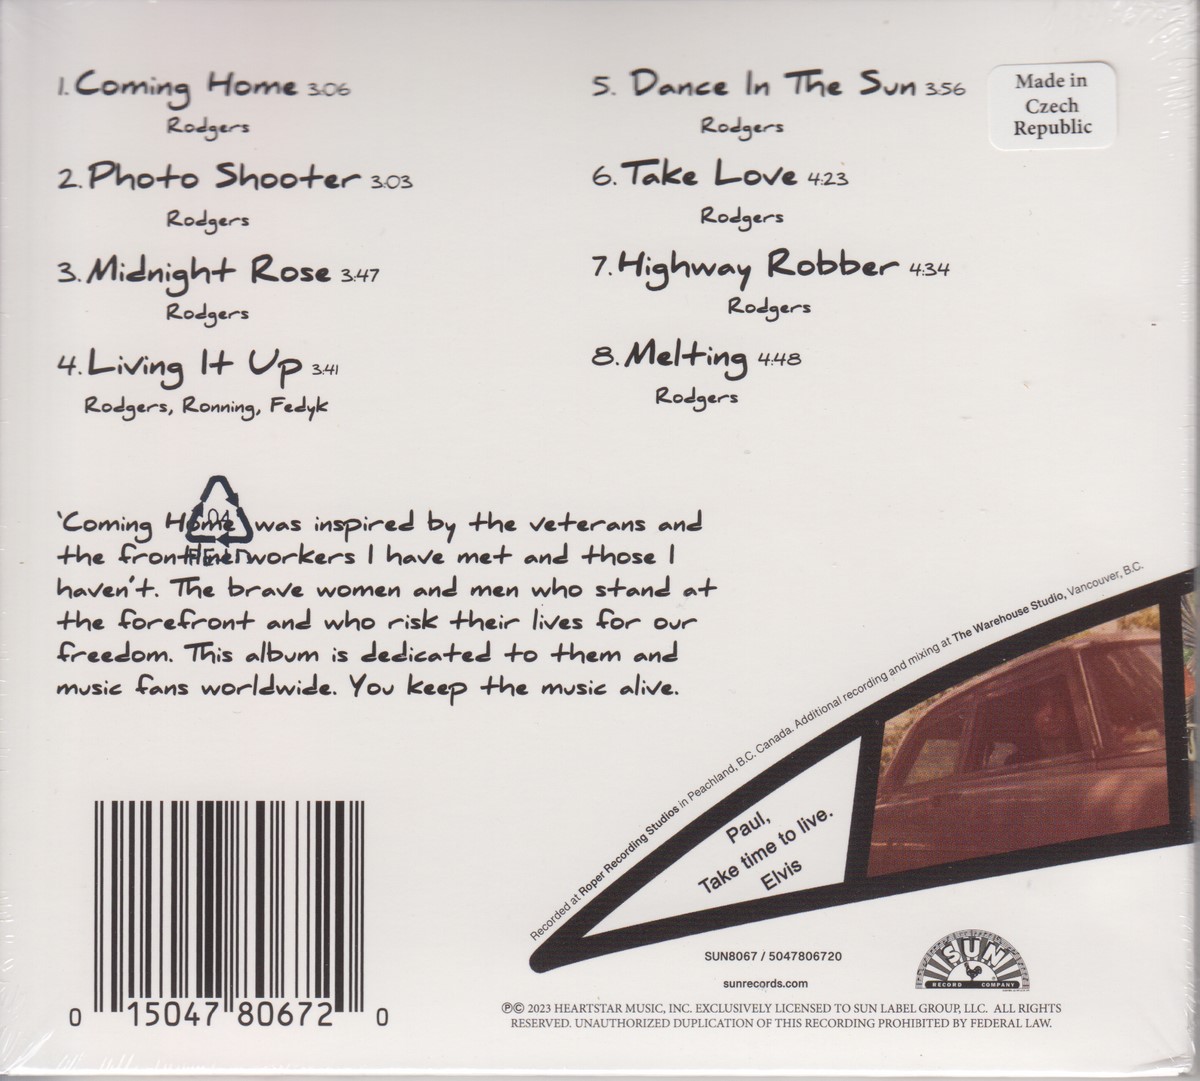 1. Coming Home 3:06
Rodgers
2. Photo Shooter 3:03
Rodgers
3. Midnight Rose 3:47
Rodgers
4. Living It Up 3:41
Rodgers, Ronning, Fedyk
5. Dance In The Sun 3:56
Rodgers
6. Take Love 4:23
Rodgers
7. Highway Robber 4:34
Rodgers
8. Melting 4:48
Rodgers
Made in
Czech
Republic
04
'Coming Home' was inspired by the veterans and
the frontline workers I have met and those I
haven't. The brave women and men who stand at
the forefront and who risk their lives for our
freedom. This album is dedicated to them and
music fans worldwide. You keep the music alive.
Recorded at Roper Recording Studios in Peachland, B.C. Canada. Additional recording and mixing at The Warehouse Studio, Vancouver, B.C.
Paul,
Take time to live.
Elvis
0 15047 80672 0
SUN8067 / 5047806720
sunrecords.com
SUN
RECORD COMPANY
℗© 2023 HEARTSTAR MUSIC, INC. EXCLUSIVELY LICENSED TO SUN LABEL GROUP, LLC. ALL RIGHTS
RESERVED. UNAUTHORIZED DUPLICATION OF THIS RECORDING PROHIBITED BY FEDERAL LAW.